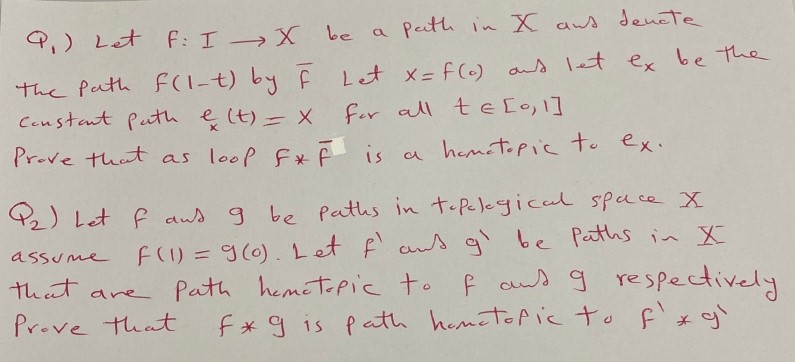 Q₁) Let f: I → X be a path in X and denote
the path f(1-t) by f̅ Let x = f(0) and let eₓ be the
constant path eₓ(t) = x for all t ∈ [0,1]
Prove that as loop f * f̅ is a homotopic to eₓ.
Q₂) Let f and g be paths in topological space X
assume f(1) = g(0). Let f' and g' be paths in X
that are path homotopic to f and g respectively
Prove that f * g is path homotopic to f' * g'